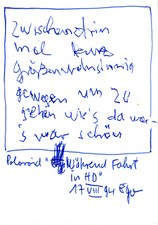 zwischendrin
mal kurz
größenwahnsinnig
gewesen um zu
sehen wie's da war
's war schön
Polaroid während Fahrt
in HD
17 VIII 94